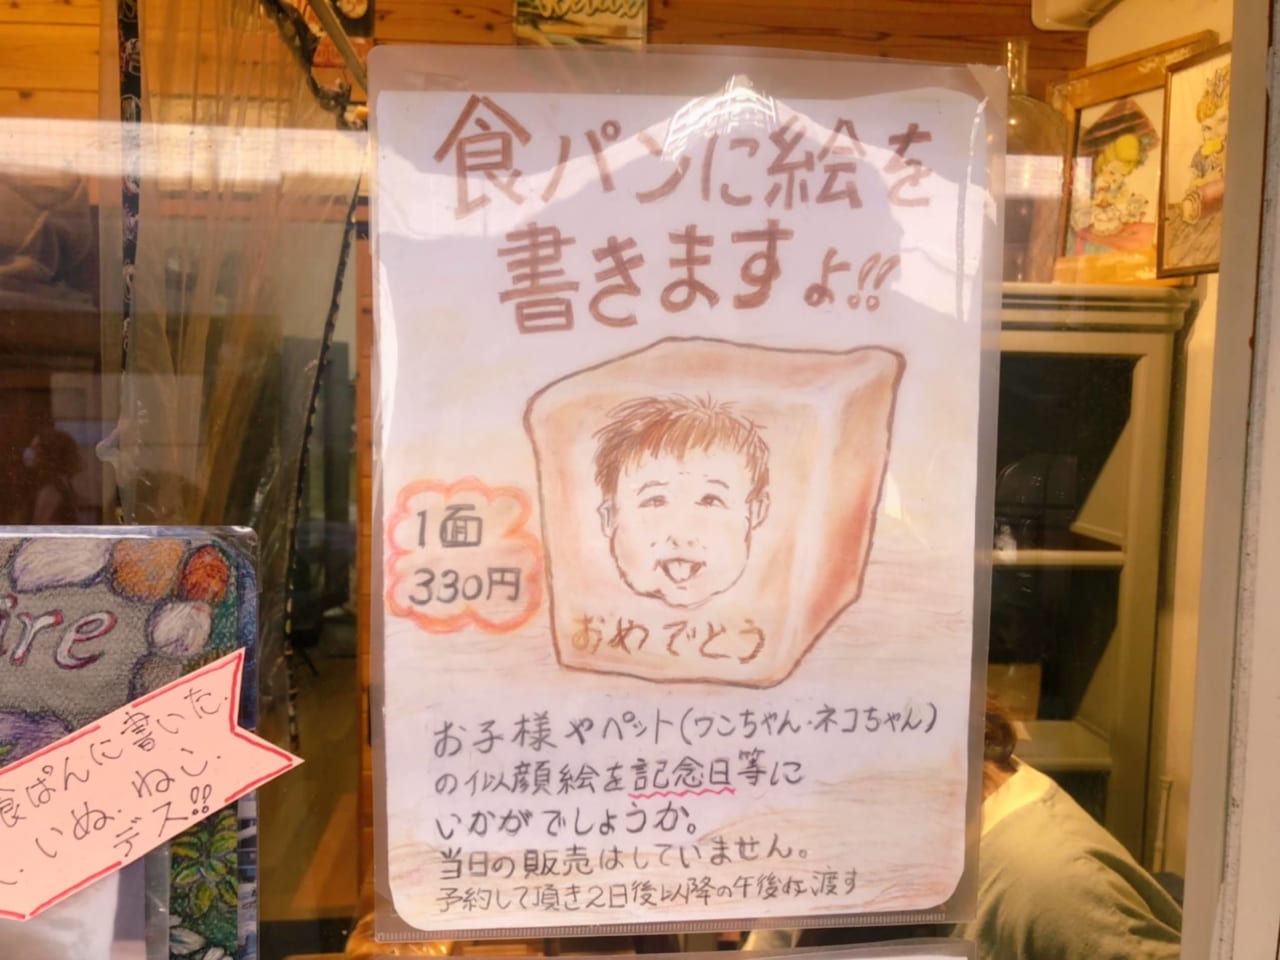 食パンに絵を
書きますよ!!
1面
330円
おめでとう
お子様やペット(ワンちゃん・ネコちゃん)
の似顔絵を記念日等に
いかがでしょうか。
当日の販売はしていません。
予約して頂き2日後以降の午後お渡す
ire
食ぱんに書いた
いぬ・ねこ
デス!!